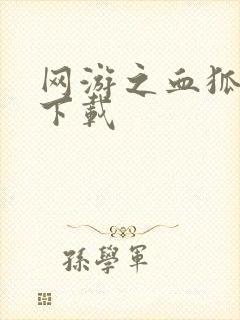 网游之血狐
下載
孫學軍